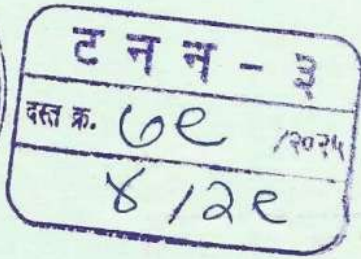 ट न न - ३
दस्त क्र. ७९ /२०२५
४ / २९